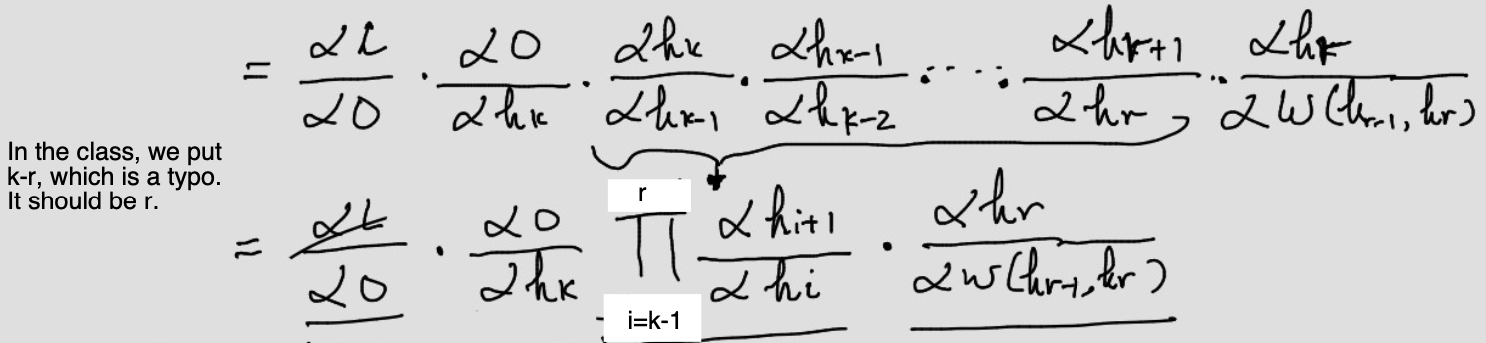 = ∂L/∂O · ∂O/∂hₖ · ∂hₖ/∂hₖ₋₁ · ∂hₖ₋₁/∂hₖ₋₂ · ···· ∂hᵣ₊₁/∂hᵣ · ∂hᵣ/∂W(hᵣ₋₁, hᵣ)
In the class, we put
k-r, which is a typo.
It should be r.
r
= ∂L/∂O · ∂O/∂hₖ ∏ ∂hᵢ₊₁/∂hᵢ · ∂hᵣ/∂W(hᵣ₋₁, hᵣ)
i=k-1